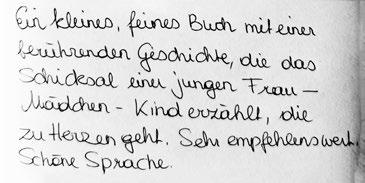 Ein kleines, feines Buch mit einer
berührenden Geschichte, die das
Schicksal einer jungen Frau –
Mädchen – Kind erzählt, die
zu Herzen geht. Sehr empfehlenswert.
Schöne Sprache.